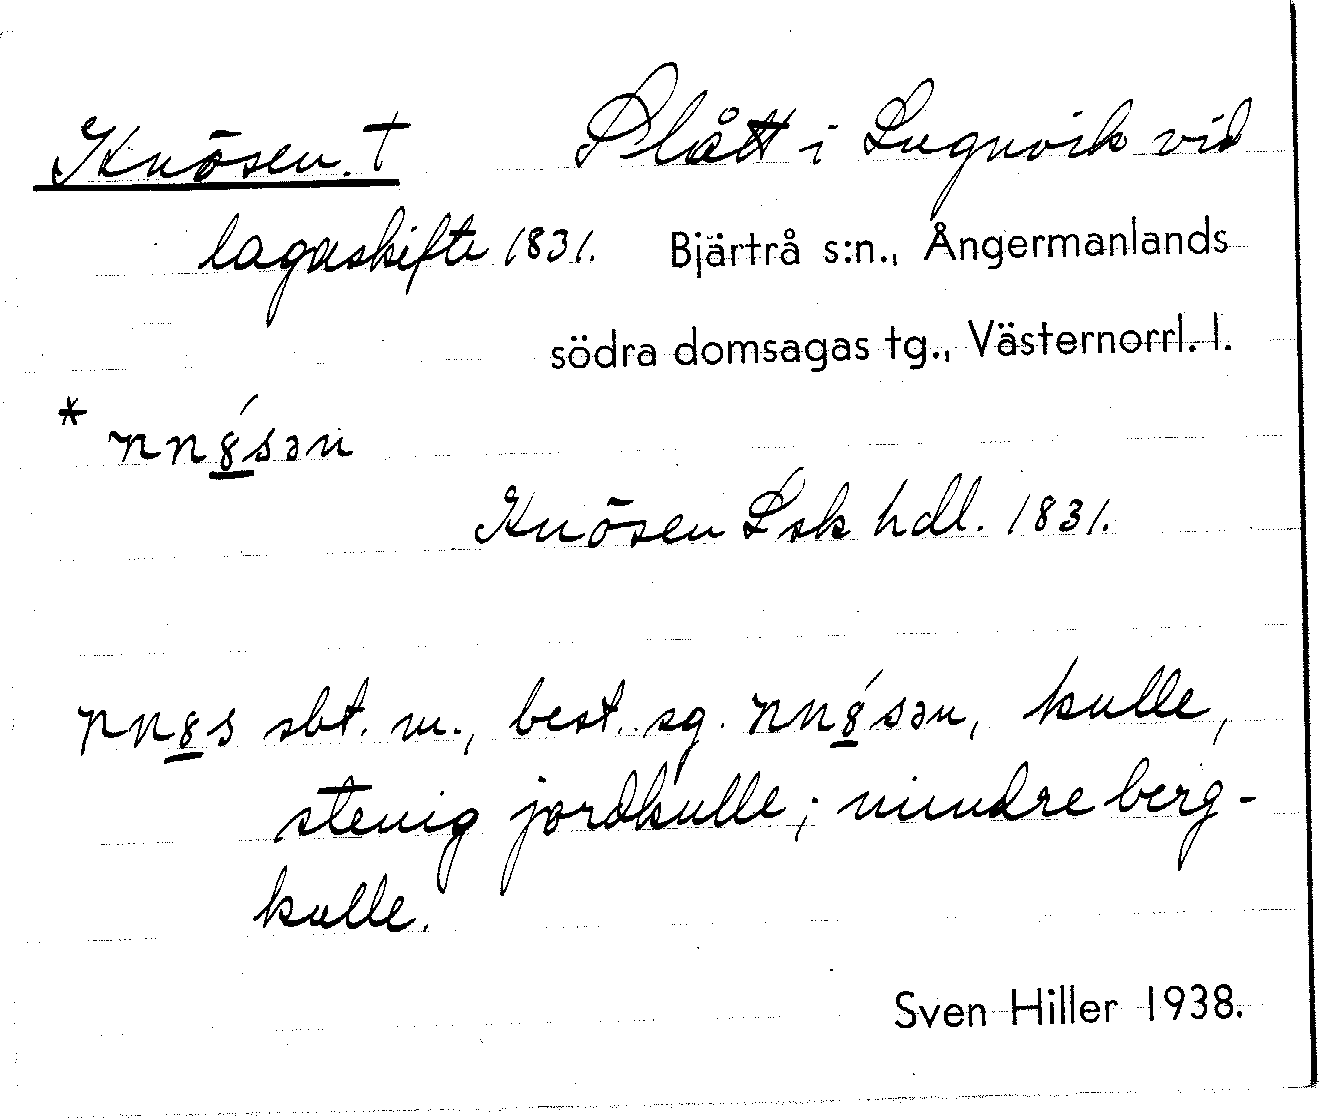 Knösen. † Slått i Lugnvik vid
lagaskifte 1831. Bjärtrå s:n., Ångermanlands
södra domsagas tg., Västernorrl. l.
Knösen Lsk hdl. 1831.
sbt. m., best. sg. kulle,
stenig jordkulle; mindre berg-
kulle.
Sven Hiller 1938.